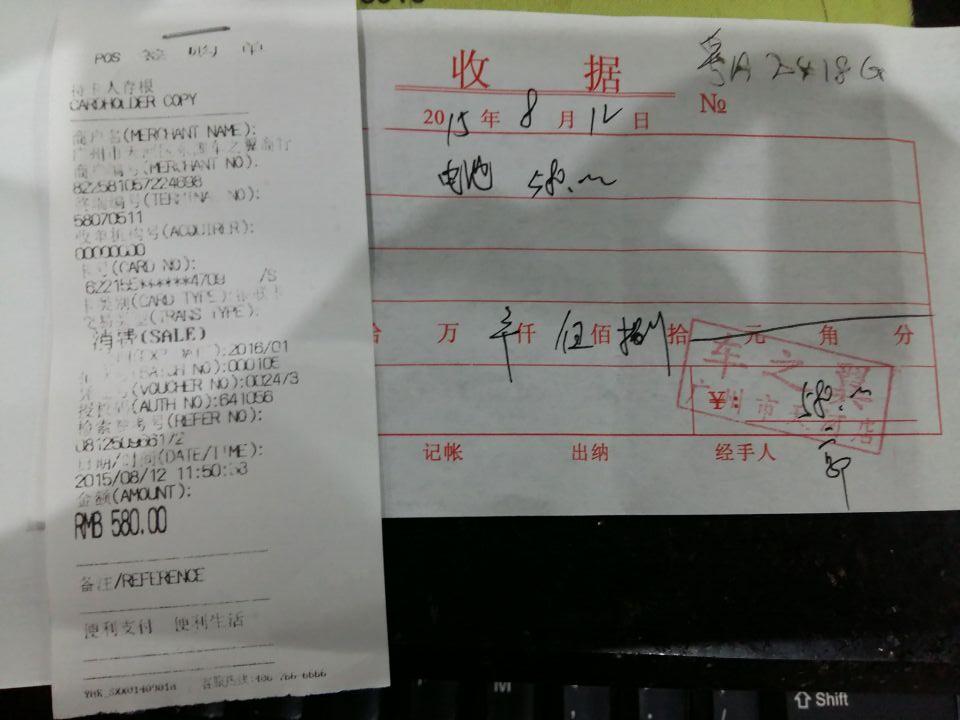 POS 签购单
持卡人存根
CARDHOLDER COPY
商户名(MERCHANT NAME):
广州市天河区东圃车之翼商行
商户编号(MERCHANT NO):
822581057224698
终端编号(TERMINAL NO):
58070511
收单机构号(ACQUIRER):
卡号(CARD NO):
622155******4709 /S
卡类别(CARD TYPE):
交易类型(TRANS TYPE):
消费(SALE)
:2016/01
(BATCH NO):000105
(VOUCHER NO):0024/3
授权码(AUTH NO):641056
检索参考号(REFER NO):
日期/时间(DATE/TIME):
2015/08/12 11:50:53
金额(AMOUNT):
RMB 580.00
备注/REFERENCE
便利支付 便利生活
客服热线:406 766 6666
收据
粤A2418G
№
2015年8月12日
电池 580.
万 仟 伍佰 捌拾 元 角 分
¥: 580.
车之翼
广州市天河店
记帐 出纳 经手人
M
Shift